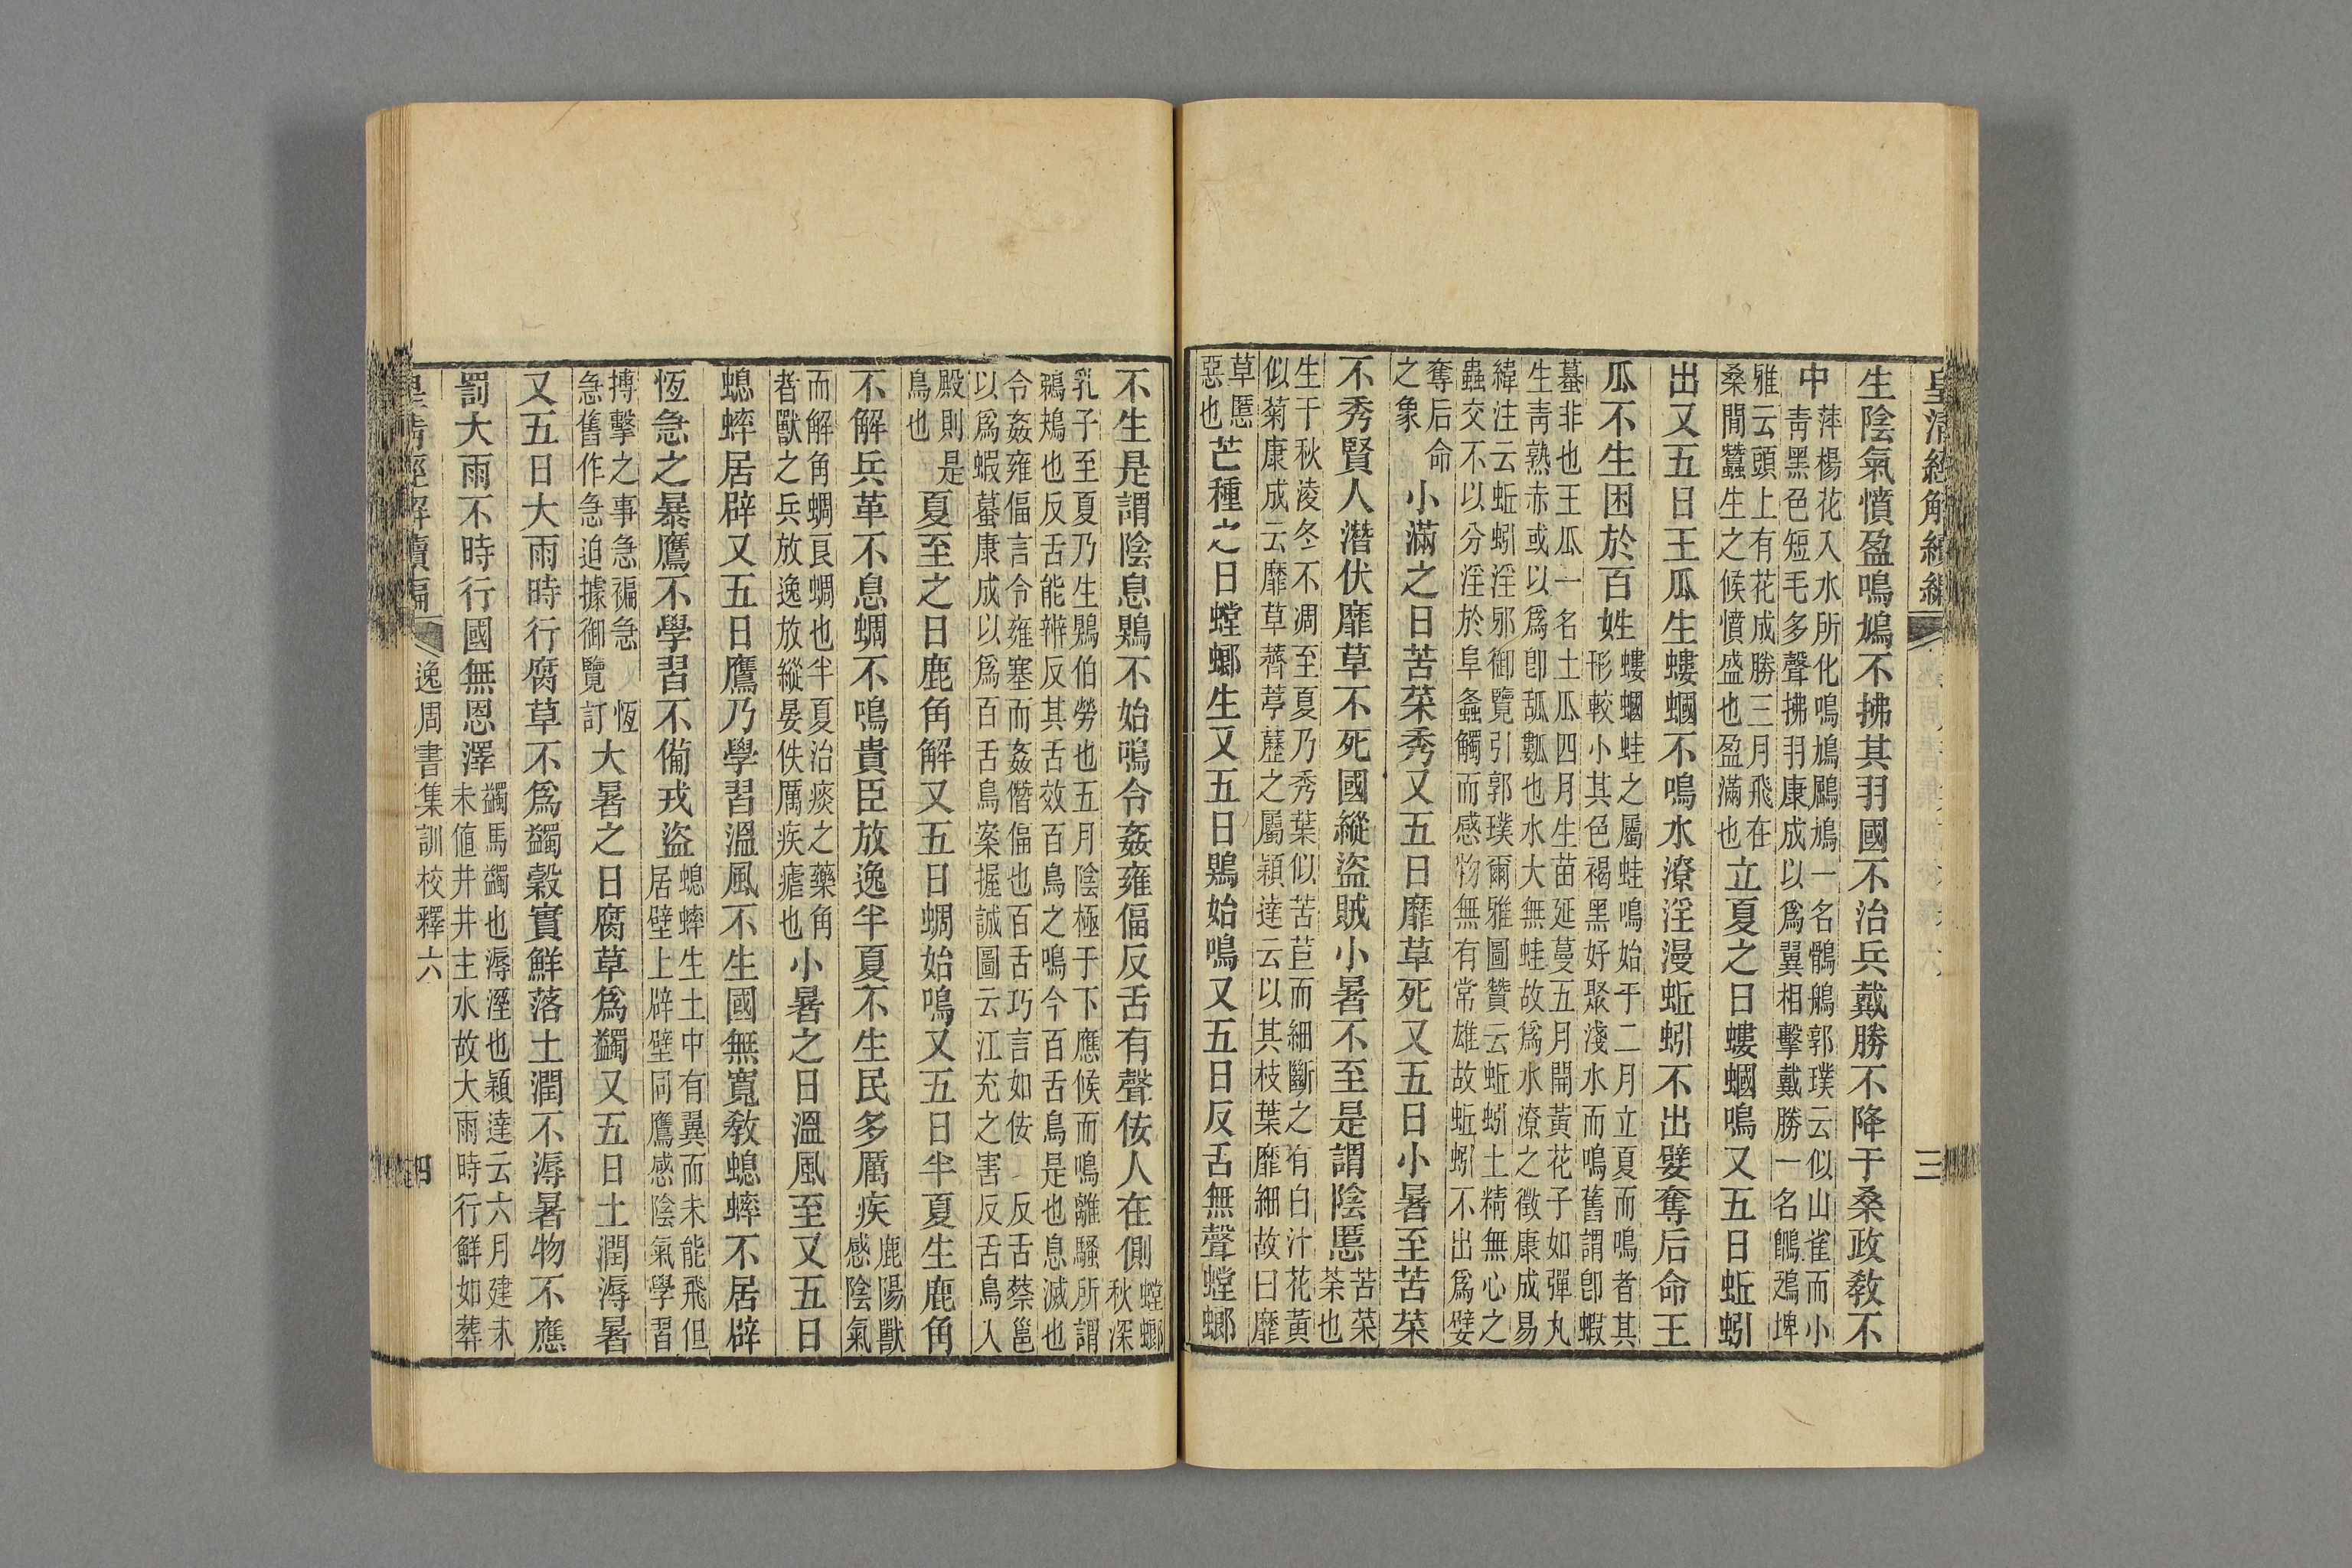 皇清經解續編 三
生陰氣憤盈鳴鳩不拂其羽國不治兵戴勝不降于桑政敎不
中萍楊花入水所化鳴鳩鶻鳩一名鶻鵃郭璞云似山雀而小
靑黑色短毛多聲拂羽康成以爲翼相擊戴勝一名鶝鵖埤
雅云頭上有花成勝三月飛在
桑閒蠶生之候憤盛也盈滿也立夏之日螻蟈鳴又五日蚯蚓
出又五日王瓜生螻蟈不鳴水潦淫漫蚯蚓不出嬖奪后命王
瓜不生困於百姓螻蟈蛙之屬蛙鳴始于二月立夏而鳴者其
形較小其色褐黑好聚淺水而鳴舊謂卽蝦
蟇非也王瓜一名土瓜四月生苗延蔓五月開黃花子如彈丸
生靑熟赤或以爲卽㼌瓤也水大無蛙故爲水潦之徵康成易
緯注云蚯蚓淫邪御覽引郭璞爾雅圖贊云蚯蚓土精無心之
蟲交不以分淫於阜螽觸而感物無有常雄故蚯蚓不出爲嬖
奪后命
之象小滿之日苦菜秀又五日靡草死又五日小暑至苦菜
不秀賢人潛伏靡草不死國縱盜賊小暑不至是謂陰慝苦菜
荼也
生于秋淩冬不凋至夏乃秀葉似苦苣而細斷之有白汁花黃
似菊康成云靡草薺葶藶之屬穎達云以其枝葉靡細故曰靡
草慝
惡也芒種之日螳螂生又五日鶪始鳴又五日反舌無聲螳螂
不生是謂陰息鶪不始鳴令姦雍偪反舌有聲佞人在側螳螂
秋深
乳子至夏乃生鶪伯勞也五月陰極于下應候而鳴離騷所謂
鵜鴂也反舌能辨反其舌效百鳥之鳴今百舌鳥是也息滅也
令姦雍偪言令雍塞而姦僭偪也百舌巧言如佞反舌蔡邕
以爲蝦蟇康成以爲百舌鳥案握誠圖云江充之害反舌鳥入
殿則是
鳥也夏至之日鹿角解又五日蜩始鳴又五日半夏生鹿角
不解兵革不息蜩不鳴貴臣放逸半夏不生民多厲疾鹿陽獸
感陰氣
而解角蜩良蜩也半夏治痰之藥角
者獸之兵放逸放縱晏佚厲疾瘧也小暑之日溫風至又五日
蟋蟀居辟又五日鷹乃學習溫風不生國無寬敎蟋蟀不居辟
恆急之暴鷹不學習不備戎盜蟋蟀生土中有翼而未能飛但
居壁上辟壁同鷹感陰氣學習
搏擊之事急褊急恆
急舊作急迫據御覽訂大暑之日腐草爲蠲又五日土潤溽暑
又五日大雨時行腐草不爲蠲穀實鮮落土潤不溽暑物不應
罰大雨不時行國無恩澤蠲馬蠲也溽溼也穎達云六月建未
未値井井主水故大雨時行鮮如葬
皇淸經解續編 逸周書集訓校釋六 四